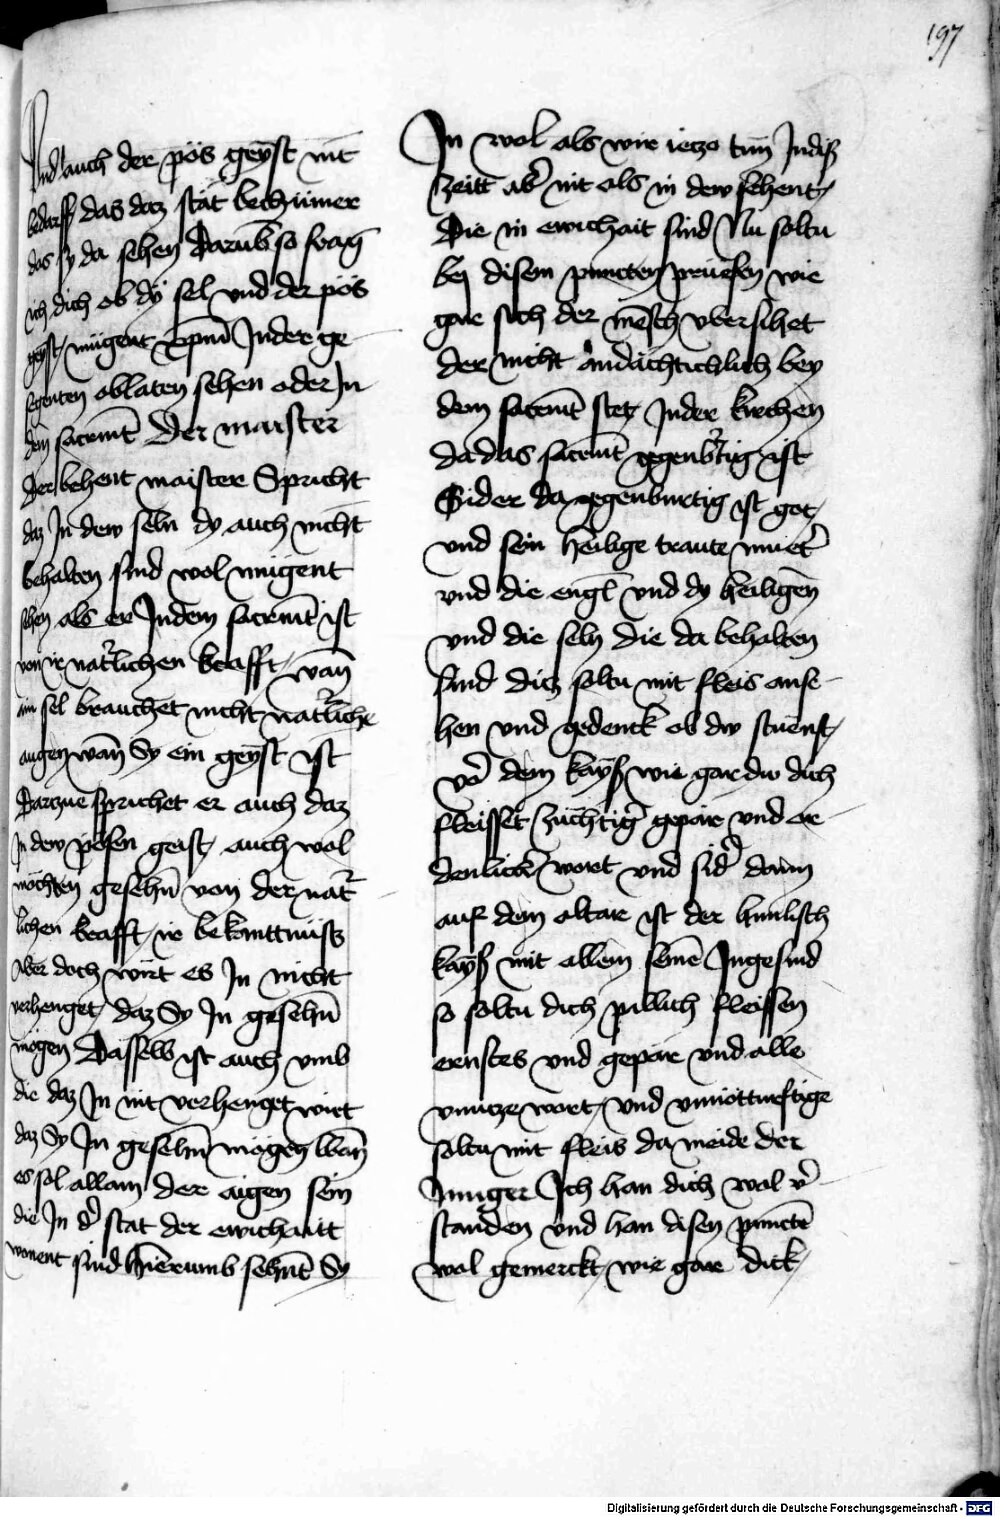 197
Und auch der pös geÿst nit
bedarff das daz stät bechümer
das sy da sehen Darūb so frag
ich dich ob dÿ sel vnd der pös
geÿst mügent xp̄m Jn der ge
segenten oblaten sehen oder Jn
dem sacrm̄t Der maister
Der behent maister Spricht
daz Jn dew seln dy auch nicht
behalten sind wol mügent
sehen als er Jn dem sacrem̄t ist
von ir nat̄lichen krafft wan̄
ain sel brauchet nicht nat̄liche
augen wan̄ Sy ein geÿst ist
Darczue sprichet er auch daz
Jn dew pösen geist auch wol
möchten gesehn̄ von der nat̄
lichen krafft ir bekanttnüss
Aber doch wirt es Jn nicht
verhenget daz Sy Jn gesehn̄
mögen Dasselb ist auch vmb
die daz Jn nit verhenget wirt
daz Sy Jn gesehn̄ mögen Wan̄
es sol allain der aigen sein
die Jn d̄ stat der ewichaitt
wonent sind hierumb sehn̄t Sy
Jn wol als wir ieczo tun̄ Jn diß
zeitt ab̄ nit als in dew sehent
Die in ewichait sind Nu soltu
beÿ disem puncten prüefen wie
gar sich der mēsch vbersihet
der nicht andächtichlich bey
dem sacrem̄t stet Jn der kirchen
da das sacrem̄t gegenb̄tig ist
Sider da gegenburtig ist got
und sein heilige traute muet̄
vnd die engl̄ vnd dy heiligen
vnd die seln die da behalten
sind Diz soltu mit fleis anse
hen vnd gedenck ob dw stuenst
vō dem kayß wie gar du dich
fleisset züchtiḡ gepär vnd or
denlich̄ wort vnd sid̄ dann
auf dem altar ist der himlisch
kayß mit allem seinē Jngesind
so soltu dich pillich fleissen
ernstes vnd gepär vnd alle
vnnücze wort vnd vnnotturftige
soltu mit fleis da meide der
Junger Jch han dich wol v̄
standen vnd han disen punctē
wol gemerckt wie gar dick
Digitalisierung gefördert durch die Deutsche Forschungsgemeinschaft - DFG